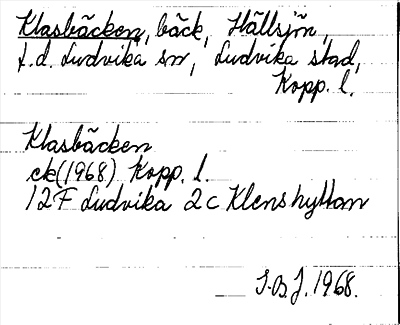 Klasbäcken, bäck, Hällsjön,
f.d. Ludvika sn, Ludvika stad,
Kopp. l.
Klasbäcken
ek (1968) Kopp. l.
12F Ludvika 2c Klenshyttan
J.B.J. 1968.